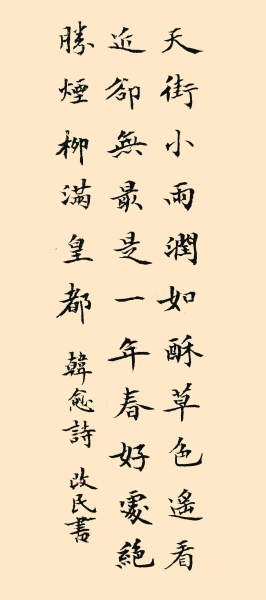 天街小雨潤如酥草色遙看
近卻無最是一年春好處絕
勝煙柳滿皇都 韓愈詩 改民書